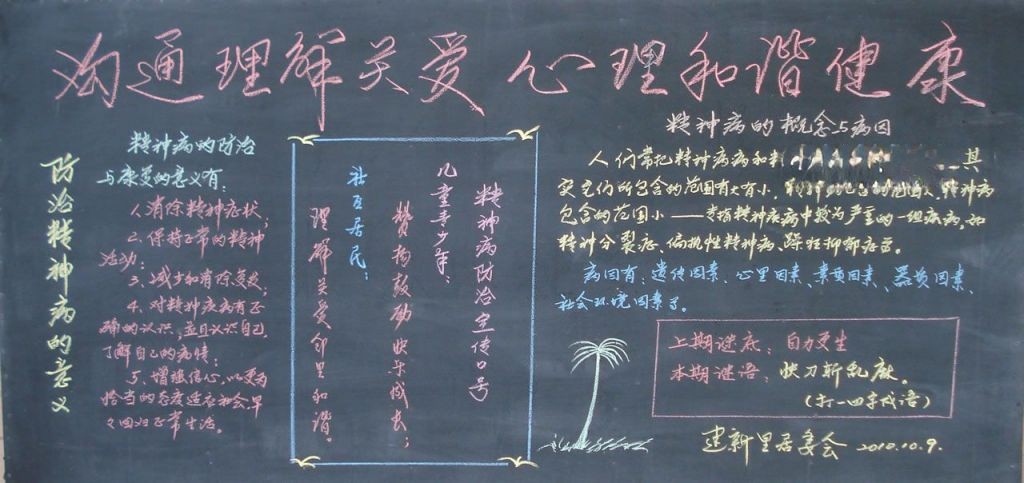 沟通理解关爱 心理和谐健康
防治精神病的意义
精神病的防治
与康复的意义有:
1、消除精神症状;
2、保持正常的精神
活动;
3、减少和消除复发;
4、对精神疾病有正
确的认识,并且认识自己
了解自己的病情;
5、增强信心,以更为
恰当的态度适应社会,早
日回归正常生活。
精神病防治宣传口号
儿童青少年:
赞扬鼓励 快乐成长;
社区居民:
理解关爱 邻里和谐。
精神病的概念与病因
人们常把精神病病和 其
实它们所包含的范围有大有小, 精神病
包含的范围小——专指精神疾病中较为严重的一组疾病,如
精神分裂症、偏执性精神病、躁狂抑郁症等。
病因有:遗传因素、心里因素、素质因素、器质因素、
社会环境因素等。
上期谜底:自力更生
本期谜语:快刀斩乱麻。
(打一四字成语)
建新里居委会 2010.10.9.